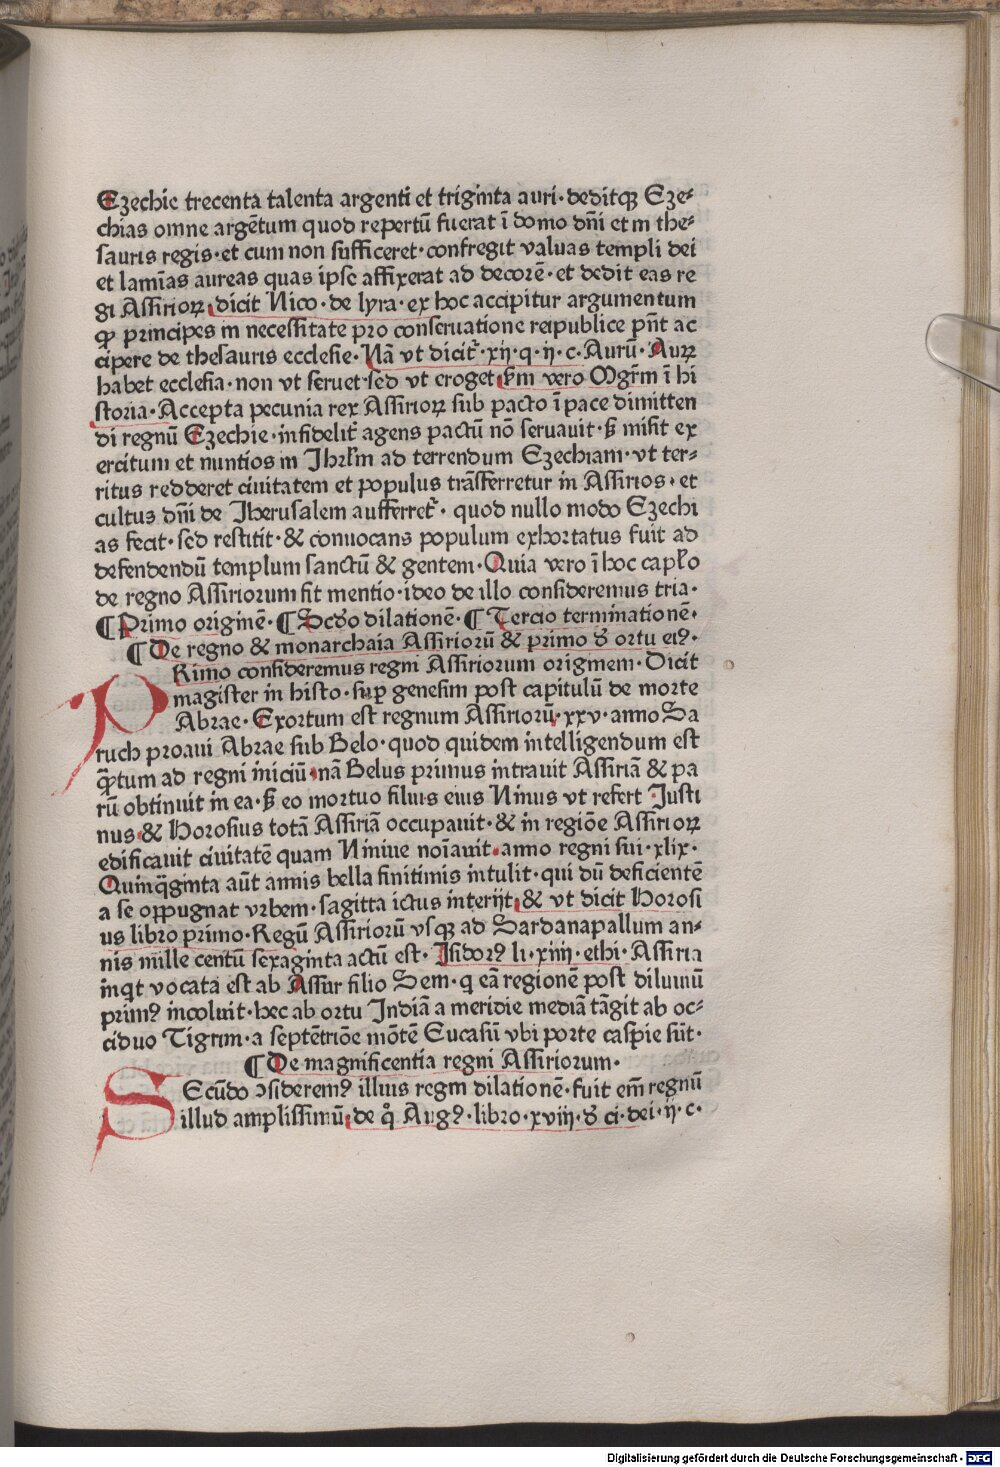 Ezechie trecenta talenta argenti et triginta auri· deditqꝫ Eze⸗
chias omne argētum quod repertū fuerat ī domo dn̄i et in the⸗
sauris regis· et cum non sufficeret· confregit valuas templi dei
et lamīas aureas quas ipse affixerat ad decorē· et dedit eas re
gi Assirioꝝ dicit Nico· de lyra· ex hoc accipitur argumentum
ꝙ principes in necessitate pro conseruatione reipublice pn̄t ac
cipere de thesauris ecclesie· Nā vt dicit᷑ ·xij· q· ij· c· Aurū· Auꝝ
habet ecclesia· non vt seruet· sed vt eroget ẜm vero Mgr̄m ī hi
storia· Accepta pecunia rex Assirioꝝ sub pacto ī pace dimitten
di regnū Ezechie· infidelit᷑ agens pactū nō seruauit· ẜ misit ex
ercitum et nuntios in Jhrlm̄ ad terrendum Ezechiam· vt ter⸗
ritus redderet ciuitatem et populus trāsferretur in Assirios· et
cultus dn̄i de Jherusalem aufferret᷑· quod nullo modo Ezechi
as fecit· sed restitit· & conuocans populum exhortatus fuit ad
defendendū templum sanctū & gentem· Quia vero ī hoc capl̄o
de regno Assiriorum fit mentio· ideo de illo consideremus tria·
¶ Primo originē· ¶ Scd̄o dilationē· ¶ Tercio terminationē·
¶ De regno & monarchaia Assiriorū & primo đ ortu eiꝰ·
PRimo consideremus regni Assiriorum originem· Dicit
magister in histo· suꝑ genesim post capitulū de morte
Abrae· Exortum est regnum Assiriorū· xxv· anno Sa
ruch proaui Abrae sub Belo· quod quidem intelligendum est
q̄ꝫtum ad regni iniciū· nā Belus primus intrauit Assiriā & pa
rū obtinuit in ea· ẜ eo mortuo filius eius Ninus vt refert Justi
nus· & Horosius totā Assiriā occupauit· & in regiōe Assirioꝝ
edificauit ciuitatē quam Niniue noīauit· anno regni sui· xlix·
Quinq̄ginta aūt annis bella finitimis intulit· qui dū deficientē
a se oppugnat vrbem· sagitta ictus interijt & vt dicit Horosi
us libro primo· Regū Assiriorū vsqꝫ ad Sardanapallum an⸗
nis mille centū sexaginta actū est· Jsidorꝰ li· xiiij· ethi· Assiria
inqt vocata est ab Assur filio Sem· q eā regionē post diluuiū
primꝰ incoluit· hec ab ortu Jndiā a meridie mediā tāgit ab oc⸗
ciduo Tigrim· a septētriōe mōtē Eucasū vbi porte caspie sūt·
¶ De magnificentia regni Assiriorum·
SEcūdo ɔsideremꝰ illius regni dilationē· fuit em̄ regnū
illud amplissimū de qͦ Augꝰ· libro· xviij· đ ci· dei· ij· c·
Digitalisierung gefördert durch die Deutsche Forschungsgemeinschaft - DFG